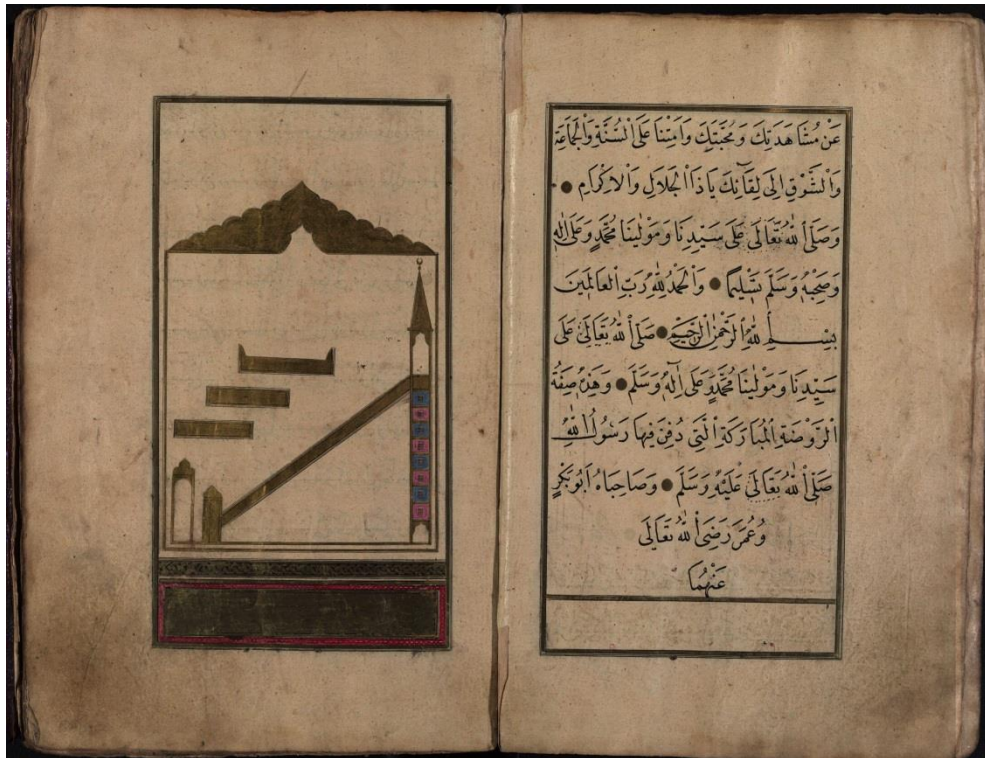 عَنْ مُشَاهَدَتِكَ وَمُحَبَّتِكَ وَاَمِتْنَا عَلَى السُّنَّةِ وَالْجَمَاعَةِ
وَالشَّوْقِ اِلَى لِقَآئِكَ يَا ذَا الْجَلَالِ وَالْاِكْرَامِ
وَصَلَّى اللّٰهُ تَعَالَى عَلَى سَيِّدِنَا وَمَوْلٰينَا مُحَمَّدٍ وَعَلَى اٰلِهِ
وَصَحْبِهِ وَسَلَّمَ تَسْلِيمًا وَالْحَمْدُ لِلّٰهِ رَبِّ الْعَالَمِينَ
بِسْمِ اللّٰهِ الرَّحْمٰنِ الرَّحِيمِ صَلَّى اللّٰهُ تَعَالَى عَلَى
سَيِّدِنَا وَمَوْلٰينَا مُحَمَّدٍ وَعَلَى اٰلِهِ وَسَلَّمَ وَهٰذِهِ صِفَةُ
الرَّوْضَةِ الْمُبَارَكَةِ الَّتِي دُفِنَ فِيهَا رَسُولُ اللّٰهِ
صَلَّى اللّٰهُ تَعَالَى عَلَيْهِ وَسَلَّمَ وَصَاحِبَاهُ اَبُو بَكْرٍ
وَعُمَرَ رَضِيَ اللّٰهُ تَعَالَى
عَنْهُمَا